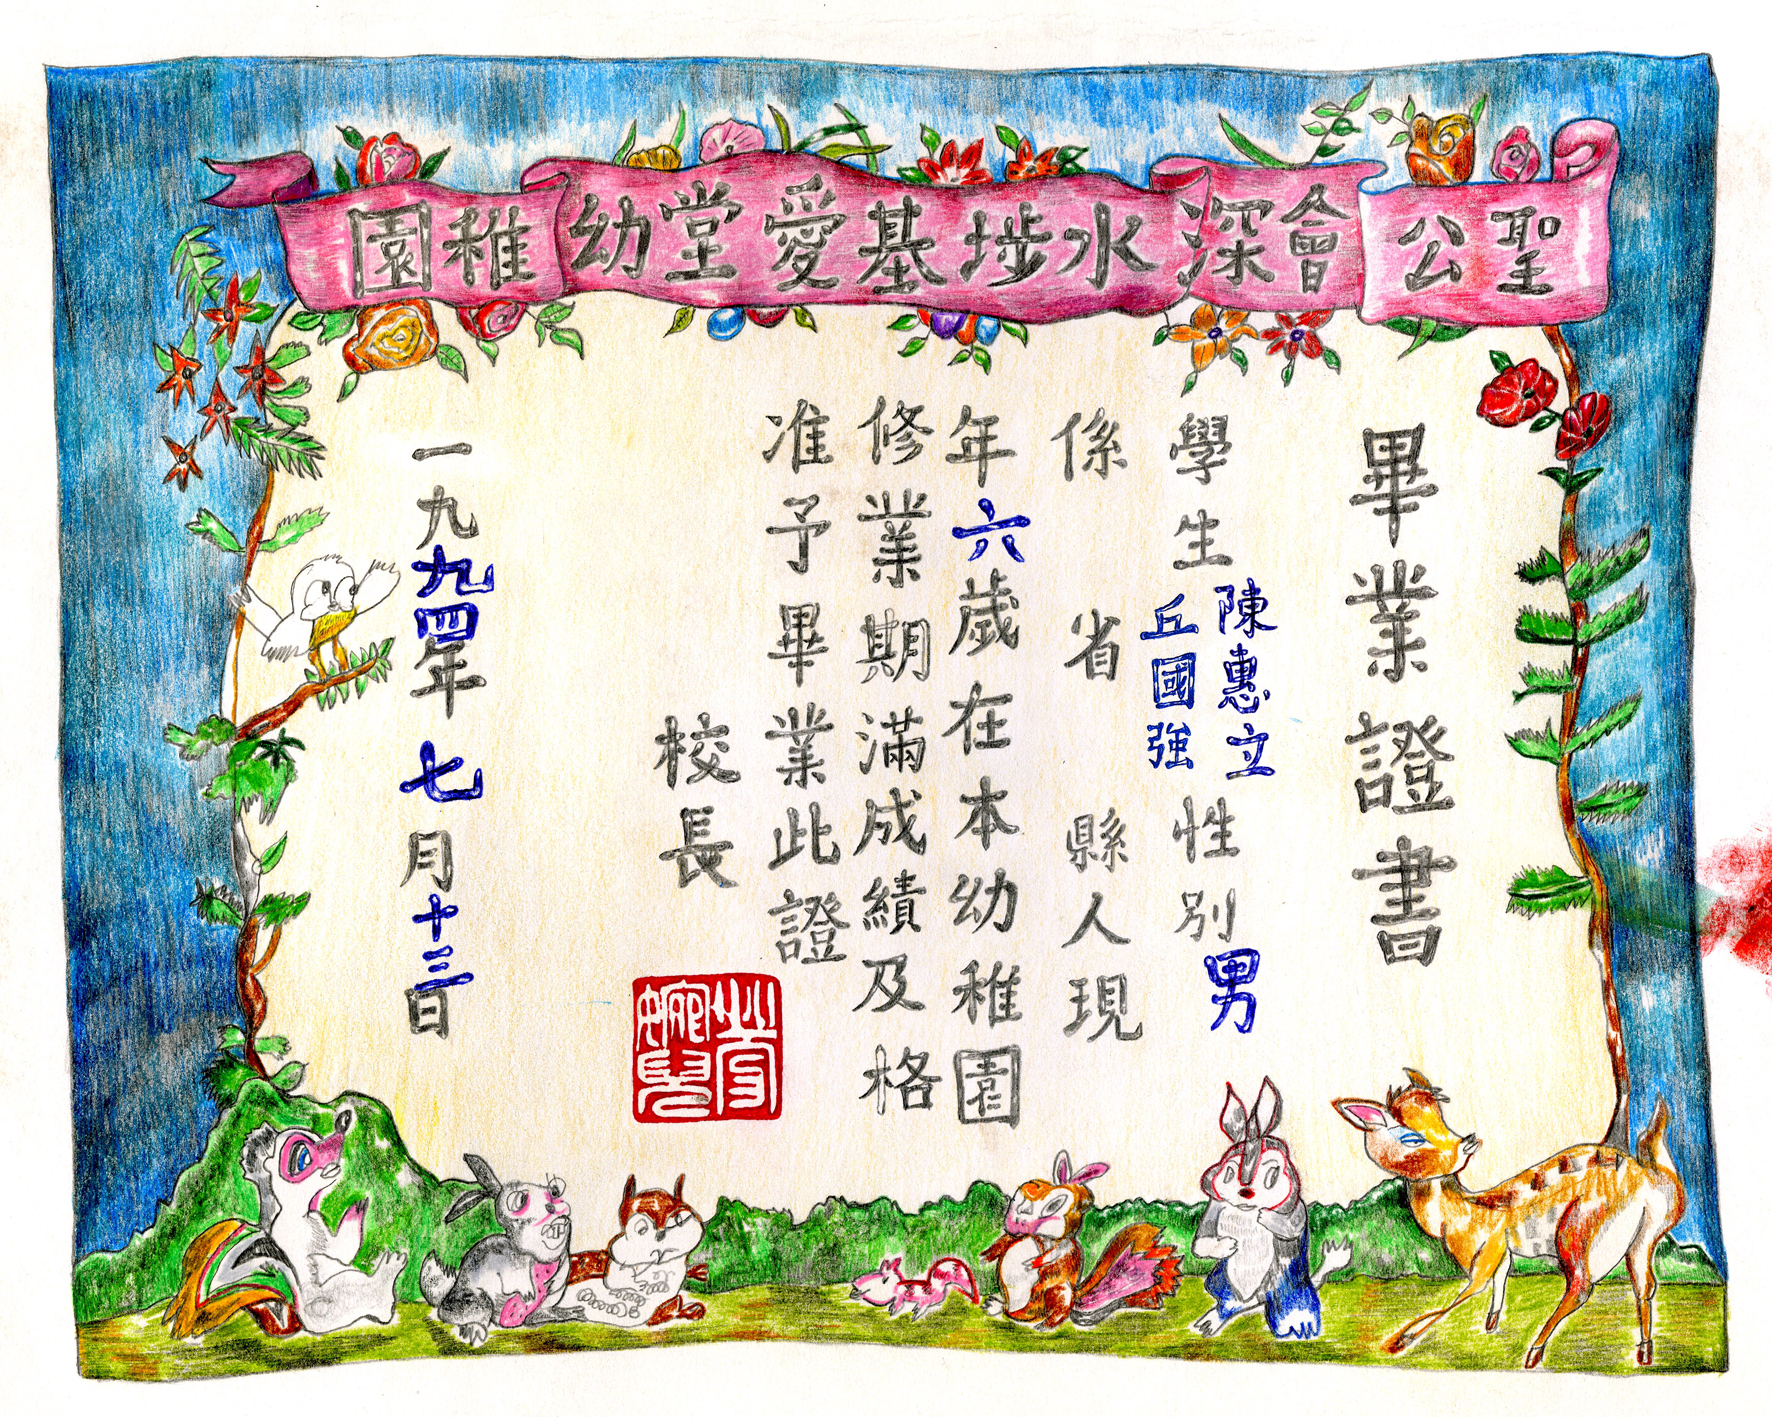 聖公會深水埗基愛堂幼稚園
畢業證書
學生陳惠立丘國強性別男
係 省 縣人現
年六歲在本幼稚園
修業期滿成績及格
准予畢業此證
校長
一九九四年七月十三日